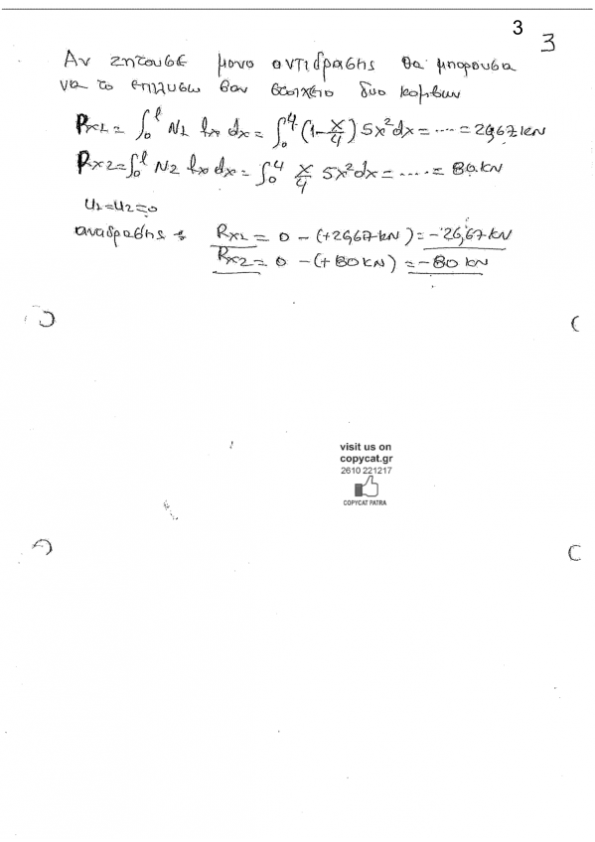 3
3
Αν ζητουσε μονο αντιδρασης θα μπορουσα
να το επιλυσω σαν στοιχειο δυο κομβων
Px1 = ∫₀ˡ N1 fx dx = ∫₀⁴ (1-x/4) 5x² dx = .... = 26,67 kN
Px2 = ∫₀ˡ N2 fx dx = ∫₀⁴ x/4 5x² dx = .... = 80 kN
u1=u2=0
αναδρασης Rx1 = 0 - (+26,67 kN) = -26,67 kN
Rx2 = 0 - (+80 kN) = -80 kN
visit us on
copycat.gr
2610 221217
COPYCAT PATRA